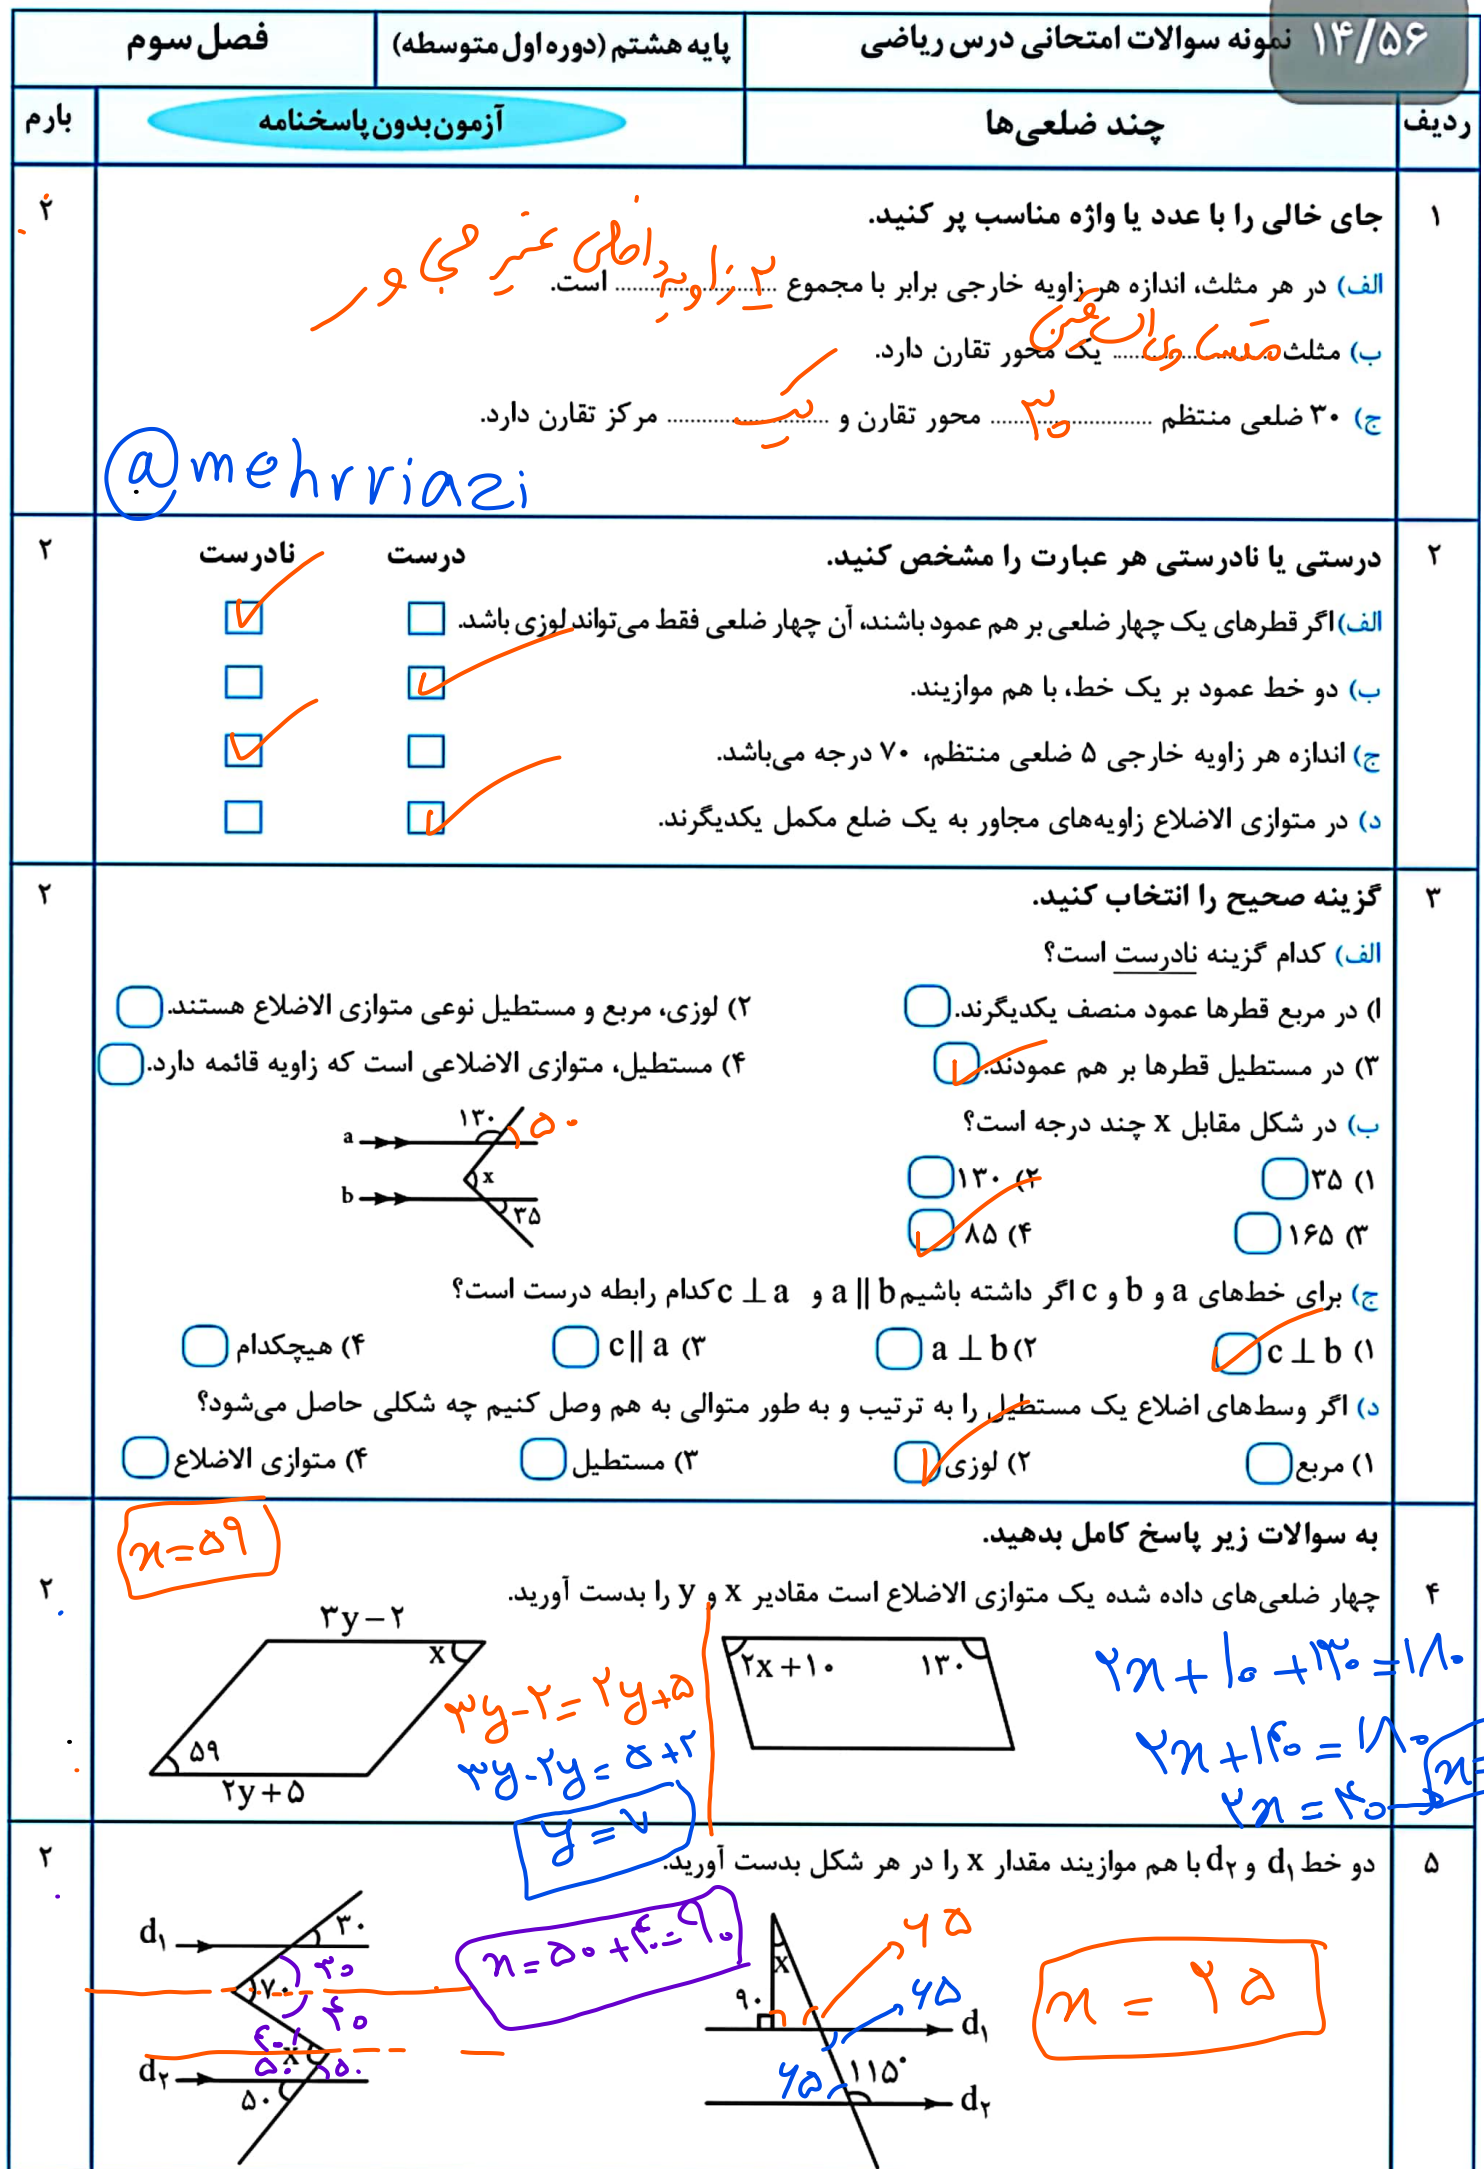 ۱۴/۵۶
نمونه سوالات امتحانی درس ریاضی
پایه هشتم (دوره اول متوسطه)
فصل سوم
ردیف
چند ضلعی‌ها
آزمون بدون پاسخنامه
بارم
۱
جای خالی را با عدد یا واژه مناسب پر کنید.
۲
الف) در هر مثلث، اندازه هر زاویه خارجی برابر با مجموع ۲ زاویه داخلی غیر مجاور است.
ب) مثلث متساوی الساقین یک محور تقارن دارد.
ج) ۳۰ ضلعی منتظم ۳۰ محور تقارن و یک مرکز تقارن دارد.
@mehrriazi
۲
درستی یا نادرستی هر عبارت را مشخص کنید.
درست
نادرست
۲
الف) اگر قطرهای یک چهار ضلعی بر هم عمود باشند، آن چهار ضلعی فقط می‌تواند لوزی باشد.
ب) دو خط عمود بر یک خط، با هم موازیند.
ج) اندازه هر زاویه خارجی ۵ ضلعی منتظم، ۷۰ درجه می‌باشد.
د) در متوازی الاضلاع زاویه‌های مجاور به یک ضلع مکمل یکدیگرند.
۳
گزینه صحیح را انتخاب کنید.
۲
الف) کدام گزینه نادرست است؟
۱) در مربع قطرها عمود منصف یکدیگرند.
۲) لوزی، مربع و مستطیل نوعی متوازی الاضلاع هستند.
۳) در مستطیل قطرها بر هم عمودند.
۴) مستطیل، متوازی الاضلاعی است که زاویه قائمه دارد.
ب) در شکل مقابل x چند درجه است؟
۱۳۰
۵۰
a
x
b
۳۵
۱) ۳۵
۲) ۱۳۰
۳) ۱۶۵
۴) ۸۵
ج) برای خط‌های a و b و c اگر داشته باشیم a || b و c ⊥ a کدام رابطه درست است؟
۱) c ⊥ b
۲) a ⊥ b
۳) c || a
۴) هیچکدام
د) اگر وسط‌های اضلاع یک مستطیل را به ترتیب و به طور متوالی به هم وصل کنیم چه شکلی حاصل می‌شود؟
۱) مربع
۲) لوزی
۳) مستطیل
۴) متوازی الاضلاع
به سوالات زیر پاسخ کامل بدهید.
x=۵۹
۴
چهار ضلعی‌های داده شده یک متوازی الاضلاع است مقادیر x و y را بدست آورید.
۲
۲x+۱۰
۱۳۰
۲x+۱۰+۱۳۰=۱۸۰
۲x+۱۴۰=۱۸۰
۲x=۴۰
x=
۳y-۲
x
۵۹
۲y+۵
۳y-۲=۲y+۵
۳y-۲y=۵+۲
y=۷
۵
دو خط d۱ و d۲ با هم موازیند مقدار x را در هر شکل بدست آورید.
۲
x
۹۰
۶۵
۶۵
d۱
۶۵
۱۱۵°
d۲
x=۲۵
d۱
۳۰
۳۰
۷۰
۴۰
۴۰
x
۵۰
۵۰
d۲
۵۰
x=۵۰+۴۰=۹۰